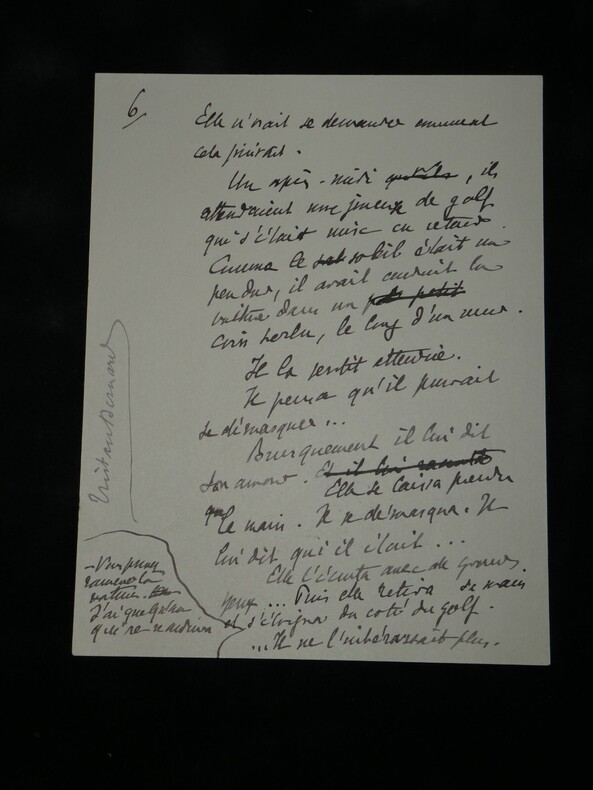 6
Elle n'osait se demander comment
cela finirait.
Un après-midi, ils
attendaient une joueuse de golf
qui s'était mise en retard.
Comme le soleil était un
peu dur, il avait conduit la
voiture dans un petit
coin perdu, le long d'un mur.
Il la sentit attendrie.
Il pensa qu'il pouvait
se démasquer...
Brusquement il lui dit
son amour. Et il lui raconta
Elle se laissa prendre
la main. Il se démasqua. Il
lui dit qui il était...
Elle l'écouta avec de grands
yeux... Puis elle retira sa main
et s'éloigna du coté du golf.
...Il ne l'intéressait plus.
- Vous pouvez
ramener la
voiture.
J'ai quelqu'un
qui me ramènera
Tristan Bernard